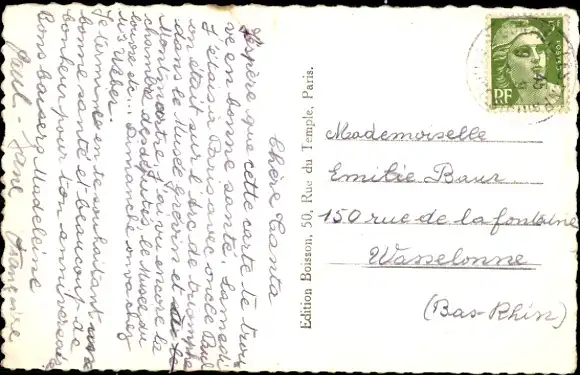 Chère Tanta
J'espère que cette carte te trou
ve en bonne santé. Samedi
J'étais à Paris avec oncle Paul
on était sur l'Arc de triomphe
dans le Musée Grévin et
Montmartre J'ai vu encore la
chambre des députés, le Musée du
louvre etc... dimanche on va chez
les Weber.
Je termine en te souhaitant une
bonne santé et beaucoup de
bonheur pour ton anniversaire
Bons baisers Madeleine
Paul - Jane Françoise
Edition Boisson, 50, Rue du Temple, Paris.
RF
POSTES
Mademoiselle
Emilie Baur
150 rue de la fontaine
Wasselonne
(Bas-Rhin)